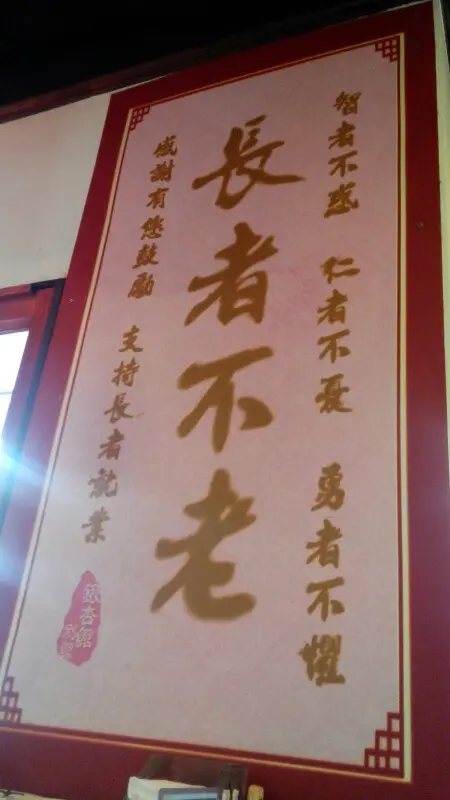 智者不惑 仁者不憂 勇者不懼
長者不老
感謝有您鼓勵 支持長者就業
銀杏館